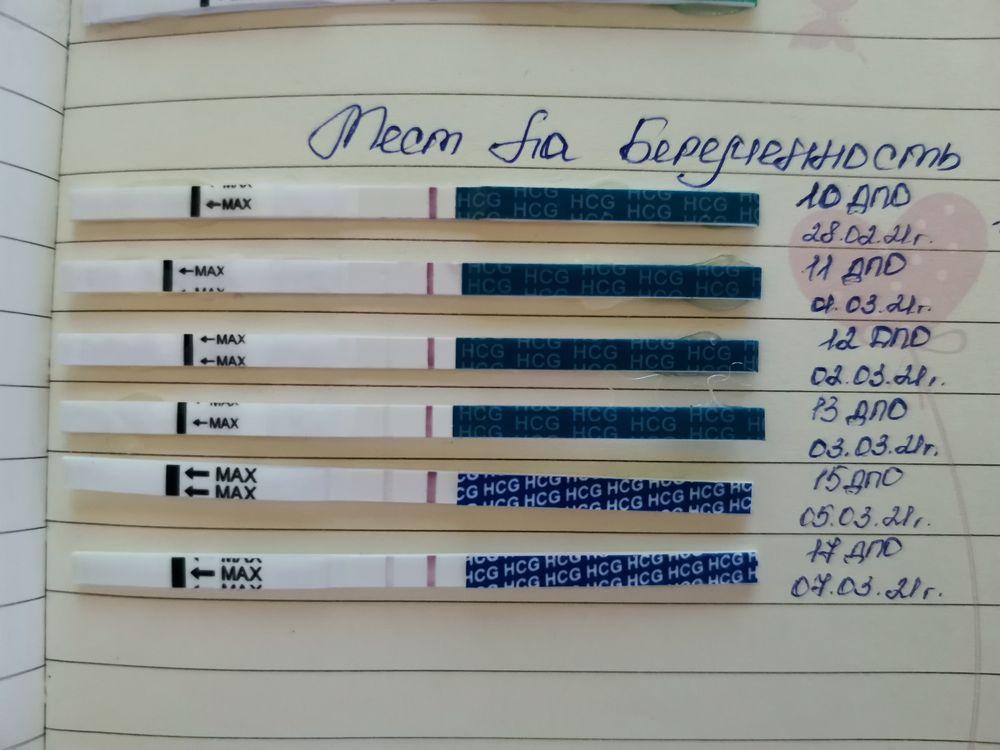 Тест на Беременность
MAX
←MAX
HCG HCG HCG HCG
HCG HCG HCG HCG
10 ДПО
28.02.21г.
←MAX
MAX
HCG HCG HCG HCG
HCG HCG HCG
11 ДПО
01.03.21г.
←MAX
←MAX
HCG HCG HCG HCG
HCG HCG HCG HCG
12 ДПО
02.03.21г.
MAX
←MAX
HCG HCG HCG HCG
HCG HCG HCG HCG
13 ДПО
03.03.21г.
← MAX
← MAX
HCG HCG HCG HCG HCG HCG HCG
15 ДПО
05.03.21г.
MAX
← MAX
MAX
HCG HCG HCG HCG HCG HCG HCG
17 ДПО
07.03.21г.